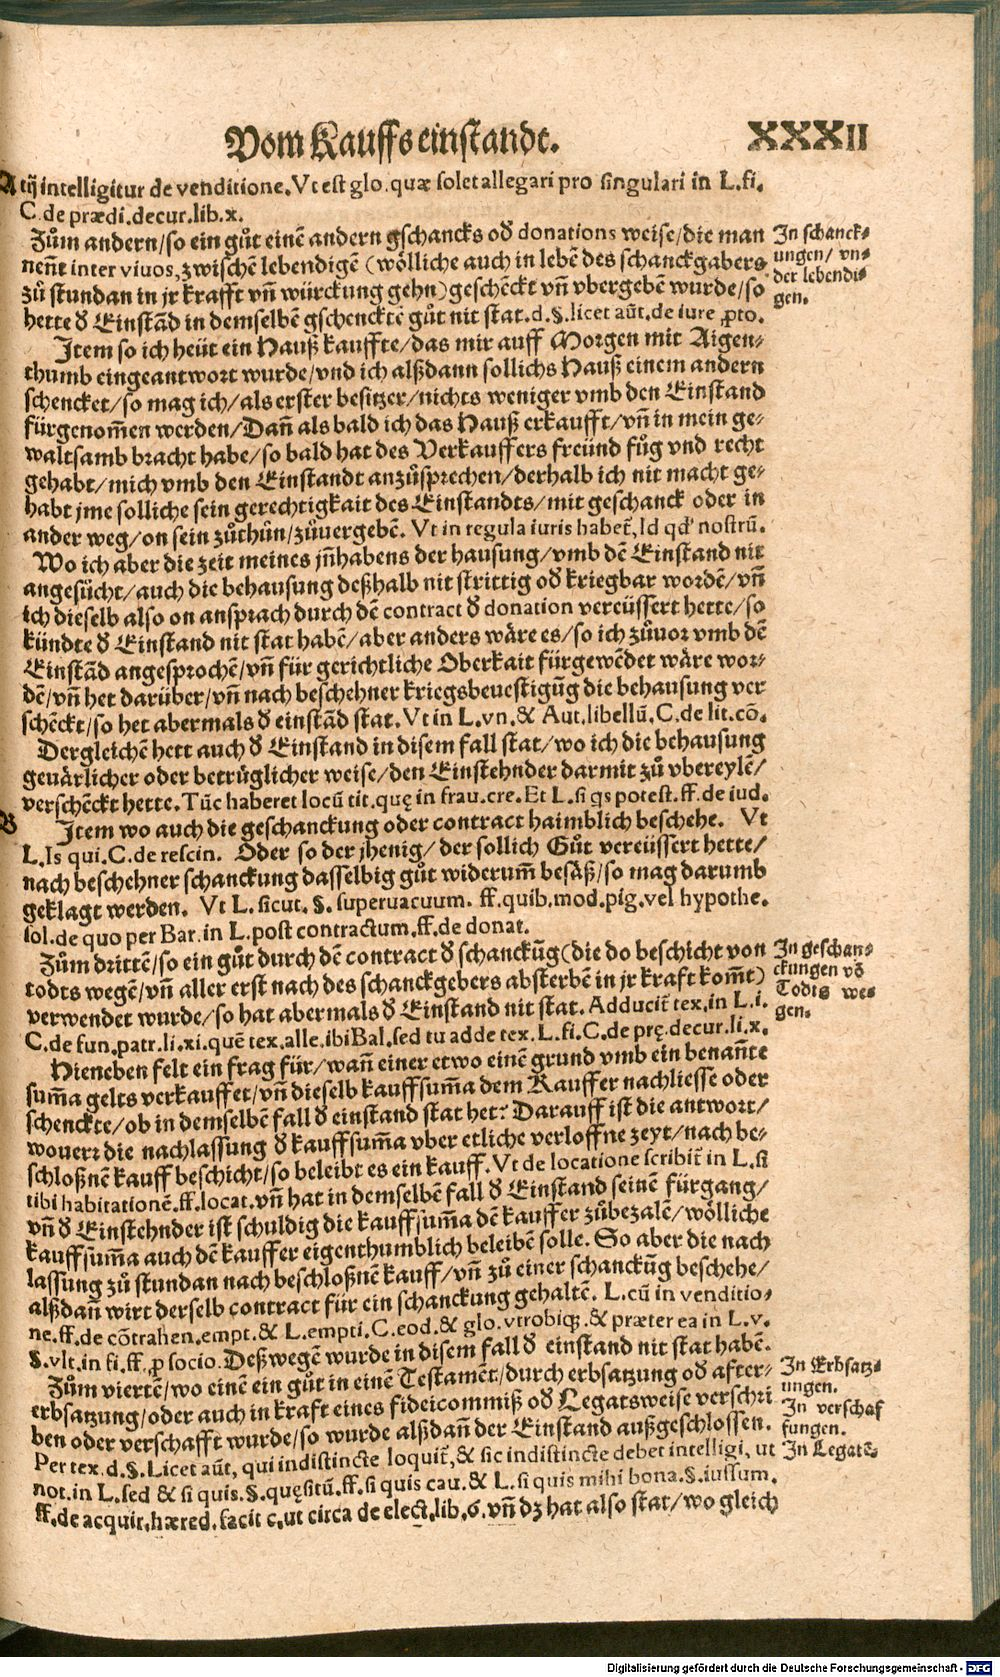 Vom Kauffs einstandt. XXXII
A tij intelligitur de venditione. Vt est glo. quæ solet allegari pro singulari in L. fi.
C. de prædi. decur. lib. x.
Zům andern/so ein gůt einē andern gschancks oð donations weise/die man
nen̄t inter viuos, zwischē lebendigē (wölliche auch in lebē des schanckgabers
zů stundan in jr krafft vn̄ würckung gehn) geschēckt vn̄ vbergebē wurde/so
hette ð Einstād in demselbē gschencktē gůt nit stat. d. §. licet aūt. de iure ꝓto.
In schanck-
ungen/ vn-
der lebendi-
gen.
Item so ich heüt ein Hauß kauffte/das mir auff Morgen mit Aigen-
thumb eingeantwort wurde/vnd ich alßdann sollichs Hauß einem andern
schencket/so mag ich/als erster besitzer/nichts weniger vmb den Einstand
fürgenom̄en werden/Dan̄ als bald ich das Hauß erkaufft/vn̄ in mein ge-
waltsamb bracht habe/so bald hat des Verkauffers freünd fůg vnd recht
gehabt/mich vmb den Einstandt anzůsprechen/derhalb ich nit macht ge-
habt jme solliche sein gerechtigkait des Einstandts/mit geschanck oder in
ander weg/on sein zůthůn/zůuergebē. Vt in regula iuris habet̄, Id qď nostrū.
Wo ich aber die zeit meines jn̄habens der hausung/vmb dē Einstand nit
angesůcht/auch die behausung deßhalb nit strittig oð kriegbar wordē/vn̄
ich dieselb also on ansprach durch dē contract ð donation vereüssert hette/so
kündte ð Einstand nit stat habē/aber anders wäre es/so ich zůuor vmb dē
Einstād angesprochē/vn̄ für gerichtliche Oberkait fürgewēdet wäre wor-
dē/vn̄ het darüber/vn̄ nach beschehner kriegsbeuestigūg die behausung ver
schēckt/so het abermals ð einstād stat. Vt in L. vn. & Aut. libellū. C. de lit. cō.
Dergleichē hett auch ð Einstand in disem fall stat/wo ich die behausung
geuärlicher oder betrüglicher weise/den Einstehnder darmit zů vbereylē/
verschēckt hette. Tūc haberet locū tit. quę in frau. cre. Et L. si qs potest. ff. de iud.
B Item wo auch die geschanckung oder contract haimblich beschehe. Vt
L. Is qui. C. de rescin. Oder so der jhenig/ der sollich Gůt vereüssert hette/
nach beschehner schanckung dasselbig gůt widerum̄ besäß/so mag darumb
geklagt werden. Vt L. sicut. §. superuacuum. ff. quib. mod. pig. vel hypothe.
sol. de quo per Bar. in L. post contractum. ff. de donat.
Zům drittē/so ein gůt durch dē contract ð schanckūg (die do beschicht von
todts wegē/vn̄ aller erst nach des schanckgebers absterbē in jr kraft kom̄t)
verwendet wurde/so hat abermals ð Einstand nit stat. Adducit̄ tex. in L. i.
C. de fun. patr. li. xi. quē tex. alle. ibi Bal. sed tu adde tex. L. fi. C. de prę. decur. li. x.
In geschan-
ckungen vō
Todts we-
gen.
Hieneben felt ein frag für/wan̄ einer etwo einē grund vmb ein benan̄te
sum̄a gelts verkauffet/vn̄ dieselb kauffsum̄a dem Kauffer nachliesse oder
schenckte/ob in demselbē fall ð einstand stat het? Darauff ist die antwort/
wouerr die nachlassung ð kauffsum̄a vber etliche verloffne zeyt/nach be-
schloßnē kauff beschicht/so beleibt es ein kauff. Vt de locatione scribit̄ in L. si
tibi habitationē. ff. locat. vn̄ hat in demselbē fall ð Einstand seinē fürgang/
vn̄ ð Einstehnder ist schuldig die kauffsum̄a dē kauffer zůbezalē/wölliche
kauffsum̄a auch dē kauffer eigenthumblich beleibē solle. So aber die nach
lassung zů stundan nach beschloßnē kauff/vn̄ zů einer schanckūg beschehe/
alßdan̄ wirt derselb contract für ein schanckung gehaltē. L. cū in venditio-
ne. ff. de cōtrahen. empt. & L. empti. C. eod. & glo. vtrobiqꝫ. & præter ea in L. v.
§. vlt. in fi. ff. ꝓ socio. Deßwegē wurde in disem fall ð einstand nit stat habē.
Zům viertē/wo einē ein gůt in einē Testamēt/durch erbsatzung oð after-
erbsatzung/oder auch in kraft eines fideicommiß oð Legatsweise verschri
ben oder verschafft wurde/so wurde alßdan̄ der Einstand außgeschlossen.
Per tex. d. §. Licet aūt, qui indistincte loquit̄, & sic indistincte debet intelligi, ut
not. in L. sed & si quis. §. quęsitū. ff. si quis cau. & L. si quis mihi bona. §. iussum.
ff. de acquir. hæred. facit c. ut circa de elect. lib. 6. vn̄ dz hat also stat/wo gleich
In Erbsatz-
ungen.
In verschaf
fungen.
In Legatē.
Digitalisierung gefördert durch die Deutsche Forschungsgemeinschaft - DFG